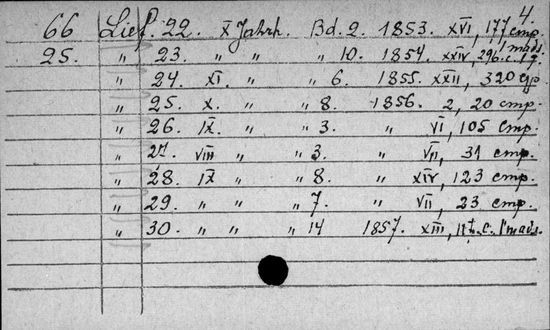 4.
66 Lief. 22. X Jahrh. Bd. 2. 1853. XVI, 177, стр.
25. " 23. " " " 10. 1854. XXIV, 296. с. 1
" 24. XI. " " 6. 1855. XXII, 320 стр
" 25. X. " " 8. 1856. 2, 20 стр.
" 26. IX. " " 3. " VI, 105 стр.
" 27. VIII " " 3. " VII, 31 стр.
" 28. IX " " 8. " XIV, 123 стр.
" 29. " " " 7. " VII, 23 стр.
" 30. " " " 14 1857. XIII, с. 1